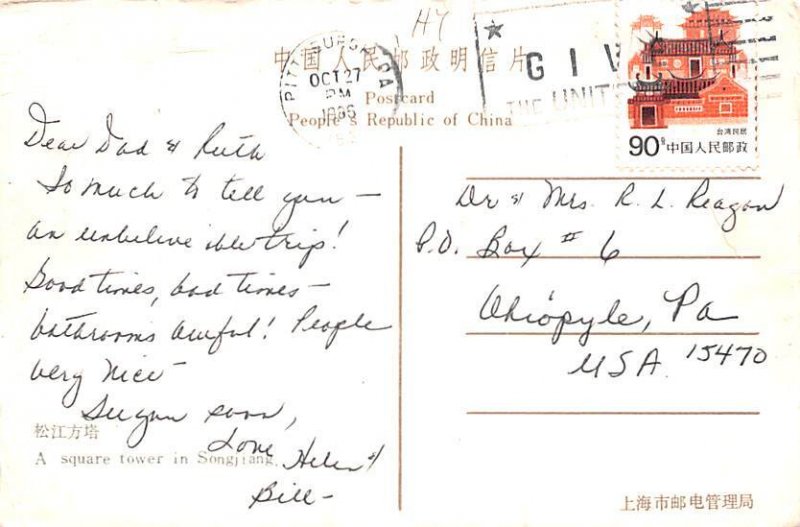 HY
中国人民邮政明信片
PITTSBURGH PA
OCT 27
PM
1986
GIV
THE UNIT
Postcard
People's Republic of China
台湾民居
90分 中国人民邮政
Dear Dad & Ruth
So much to tell you –
an unbelive able trip!
Good times, bad times –
bathrooms awful! People
very nice –
See you soon,
Love Helen &
Bill –
松江方塔
A square tower in Songjiang
Dr & Mrs. R. L. Reagan
P.O. Box # 6
Ohiopyle, Pa
USA. 15470
上海市邮电管理局